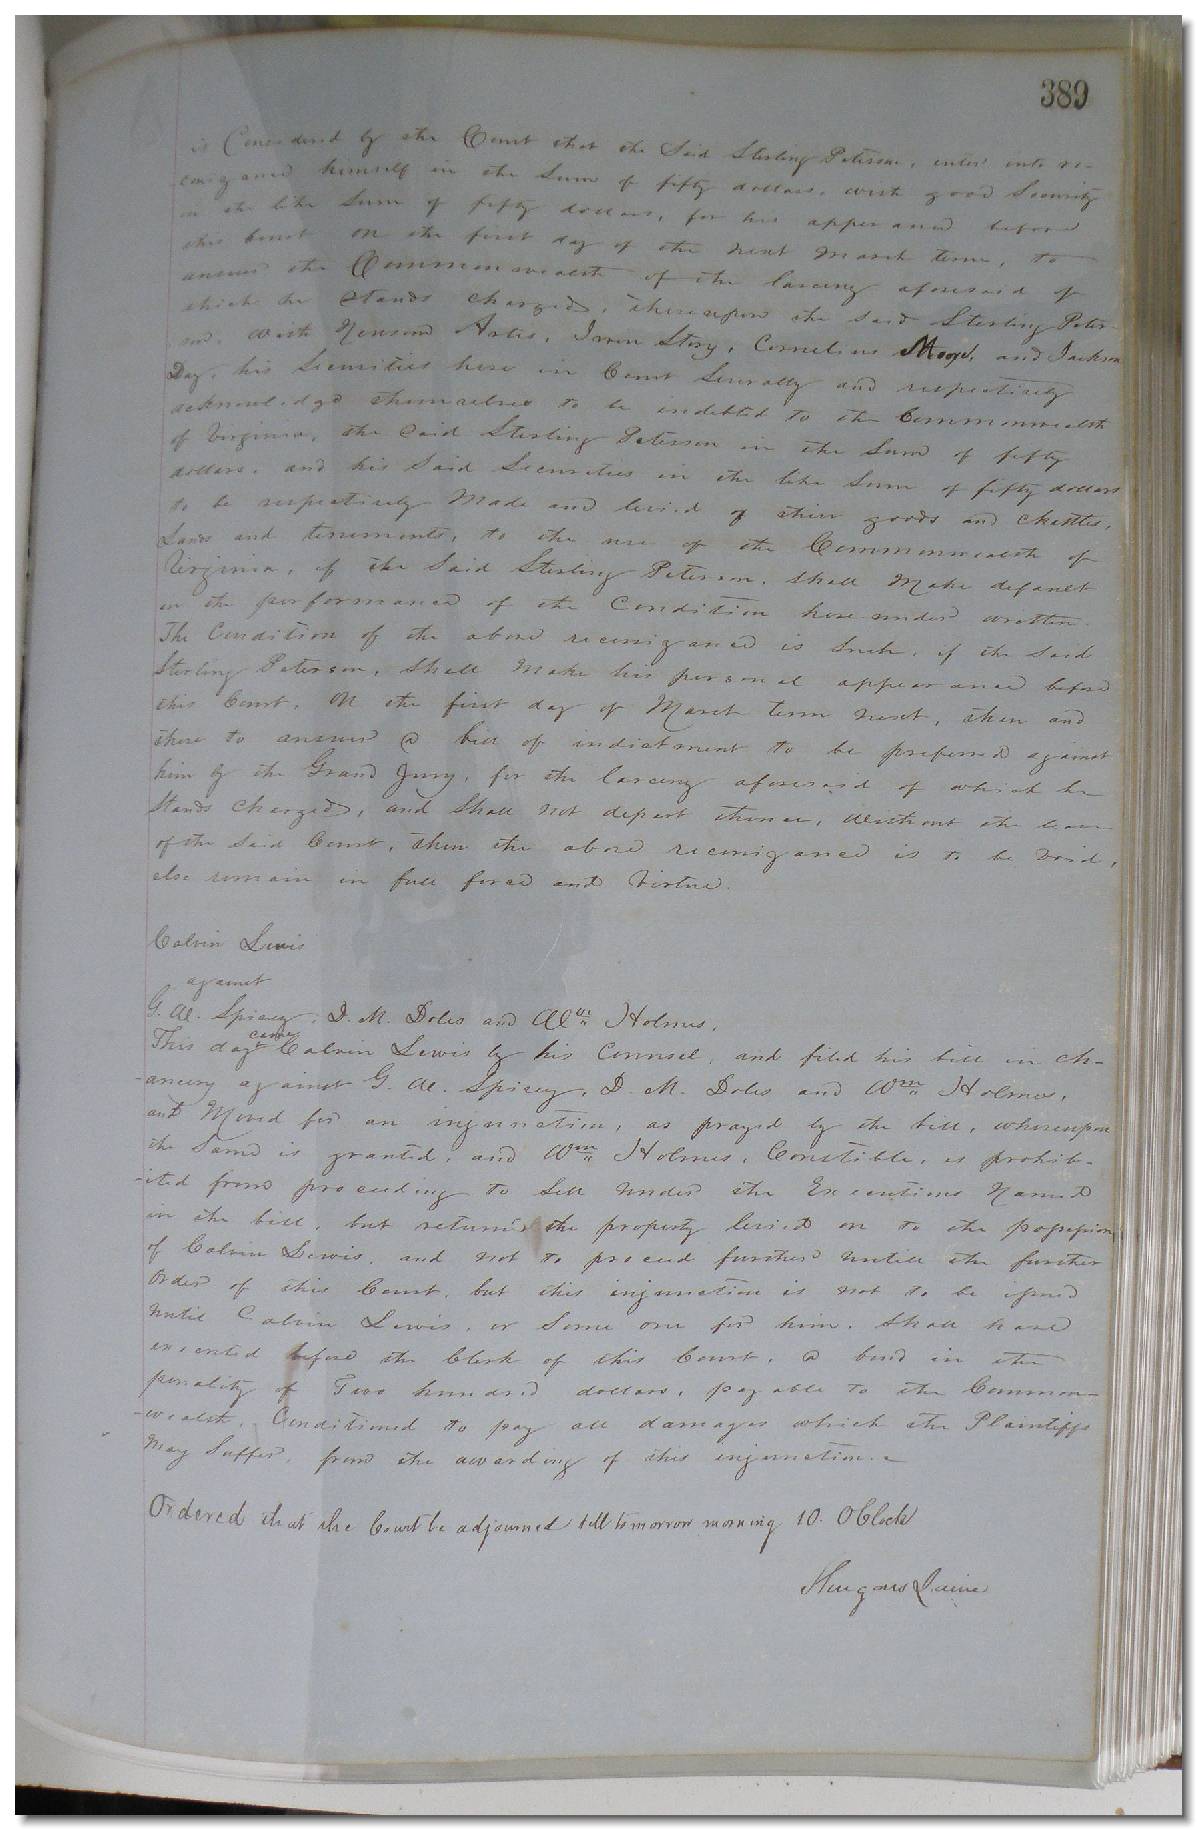 389
is Considered by the Court that the Said Sterling Peterson, enter into re-
cognizance himself in the Sum of fifty dollars, with good Security
in the like Sum of fifty dollars, for his appearance before
this Court on the first day of the next March term, to
answer the Commonwealth of the larceny aforesaid of
which he Stands Charged, thereupon the said Sterling Peter-
son, with Artis, Story, Cornelius and Jackson
Day, his Securities here in Court Severally and respectively
acknowledge themselves to be indebted to the Commonwealth
of Virginia, the Said Sterling Peterson in the Sum of fifty
dollars, and his Said Securities in the like Sum of fifty dollars
to be respectively Made and levied of their goods and Chattles,
Lands and tenements, to the use of the Commonwealth of
Virginia, if the Said Sterling Peterson, Shall Make default
in the performance of the Condition hereunder written.
The Condition of the above recognizance is Such, if the Said
Sterling Peterson, Shall Make his personal appearance before
this Court, on the first day of March term next, then and
there to answer a bill of indictment to be preferred against
him by the Grand Jury, for the larceny aforesaid of which he
Stands Charged, and Shall not depart thence, Without the leave
of the Said Court, then the above recognizance is to be Void,
else remain in full force and Virtue.
Calvin Lewis
against
G. W. Spicey, D. M. Doles and Wm Holmes,
This day came Calvin Lewis by his Counsel, and filed his bill in Ch-
-ancery against G. W. Spicey, D. M. Doles and Wm Holmes,
and Moved for an injunction, as prayed by the bill, whereupon
the Same is granted, and Wm Holmes, Constible, is prohib-
-ited from proceeding to Sell under the Executions Named
in the bill, but return'd the property levied on to the possession
of Calvin Lewis, and not to proceed further untill the further
order of this Court, but this injunction is not to be issued
until Calvin Lewis, or Some one for him, Shall have
executed before the Clerk of this Court, a bond in the
penality of Two hundred dollars, payable to the Common-
-wealth, Conditioned to pay all damages which the Plaintiffs
May Suffer, from the awarding of this injunction.
Ordered that the Court be adjourned till tomorrow morning 10. OClock